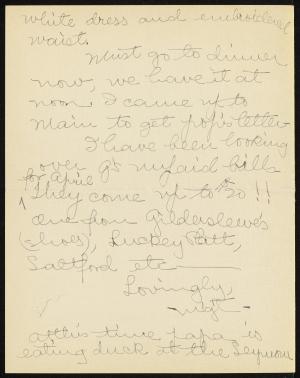 white dress and embroidered
waist.
Must go to dinner
now, we have it at
noon. I came up to
Main to get pop's letter
I have been looking
over my unpaid bills
for April
They come up to $20 !!
one from Gildersleeve's
(shoes), Luckey Platt,
Saltford etc
Lovingly,
at this time papa is
eating duck at the Seymour